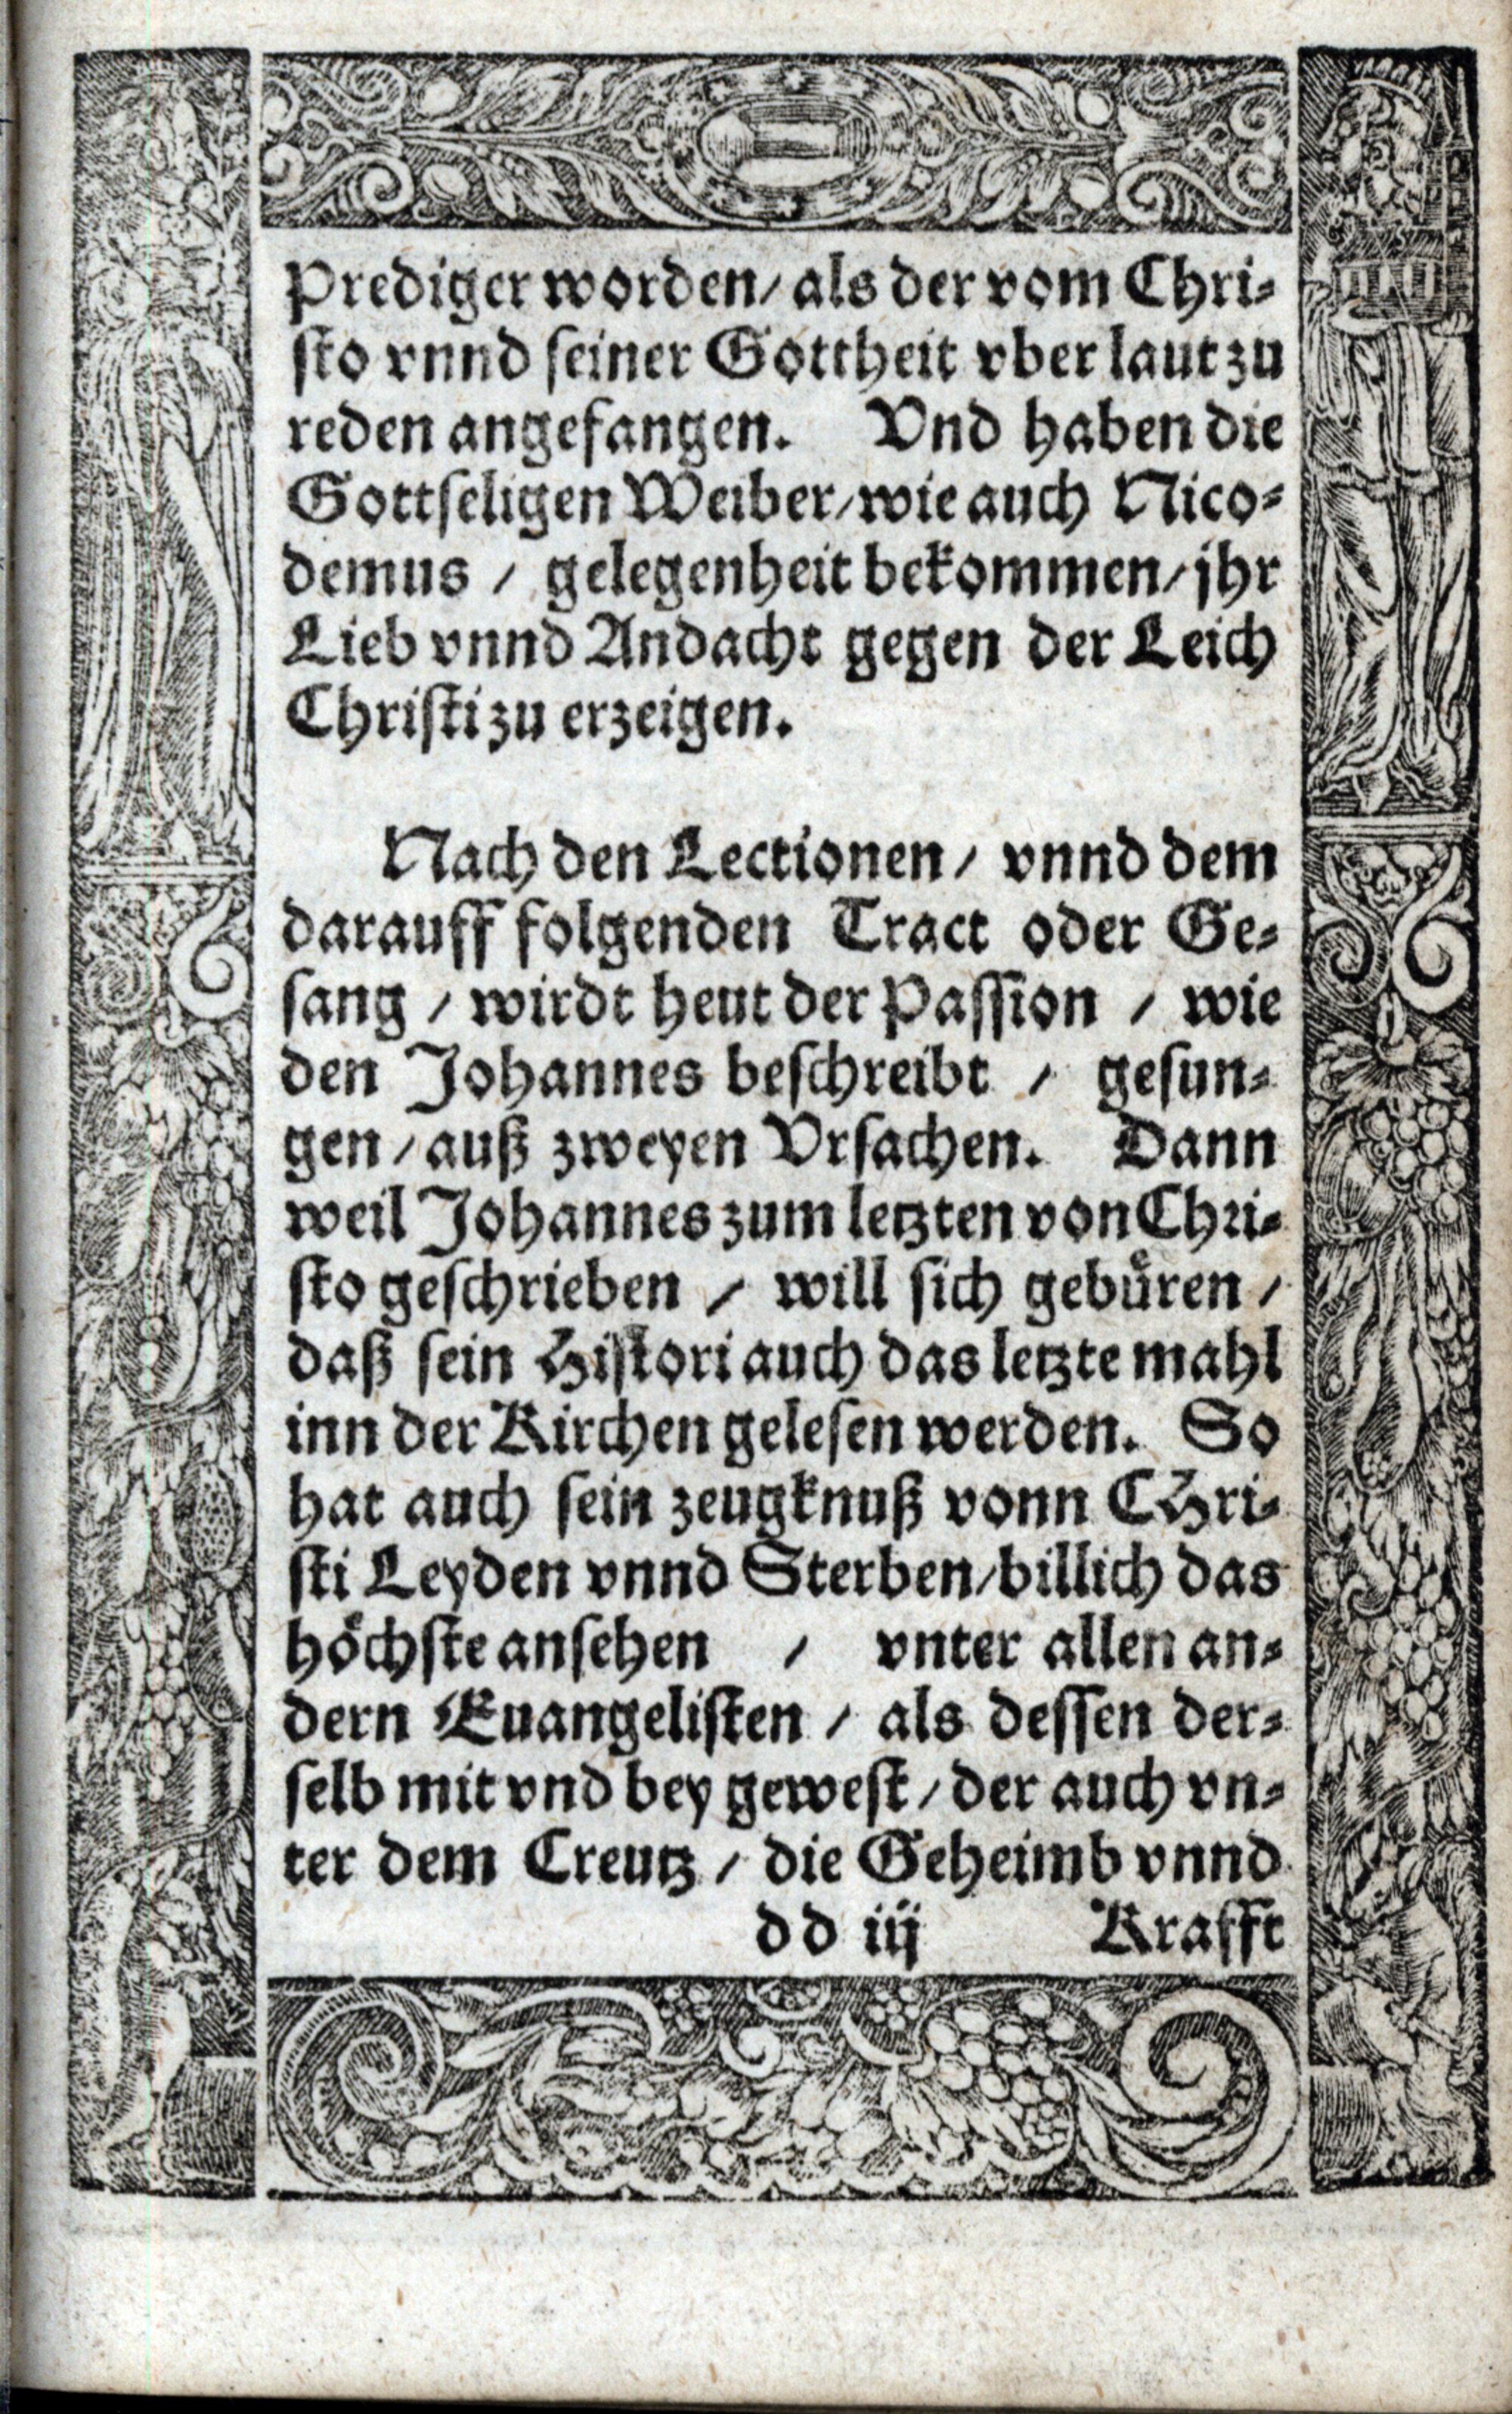 Prediger worden / als der vom Chri-
sto vnnd seiner Gottheit vber laut zu
reden angefangen. Vnd haben die
Gottseligen Weiber / wie auch Nico-
demus / gelegenheit bekommen / jhr
Lieb vnnd Andacht gegen der Leich
Christi zu erzeigen.
Nach den Lectionen / vnnd dem
darauff folgenden Tract oder Ge-
sang / wirdt heut der Passion / wie
den Johannes beschreibt / gesun-
gen / auß zweyen Vrsachen. Dann
weil Johannes zum letzten von Chri-
sto geschrieben / will sich gebüren /
daß sein Histori auch das letzte mahl
inn der Kirchen gelesen werden. So
hat auch sein zeugknuß vonn CHri-
sti Leyden vnnd Sterben / billich das
höchste ansehen / vnter allen an-
dern Euangelisten / als dessen der-
selb mit vnd bey gewest / der auch vn-
ter dem Creutz / die Geheimb vnnd
dd iij Krafft